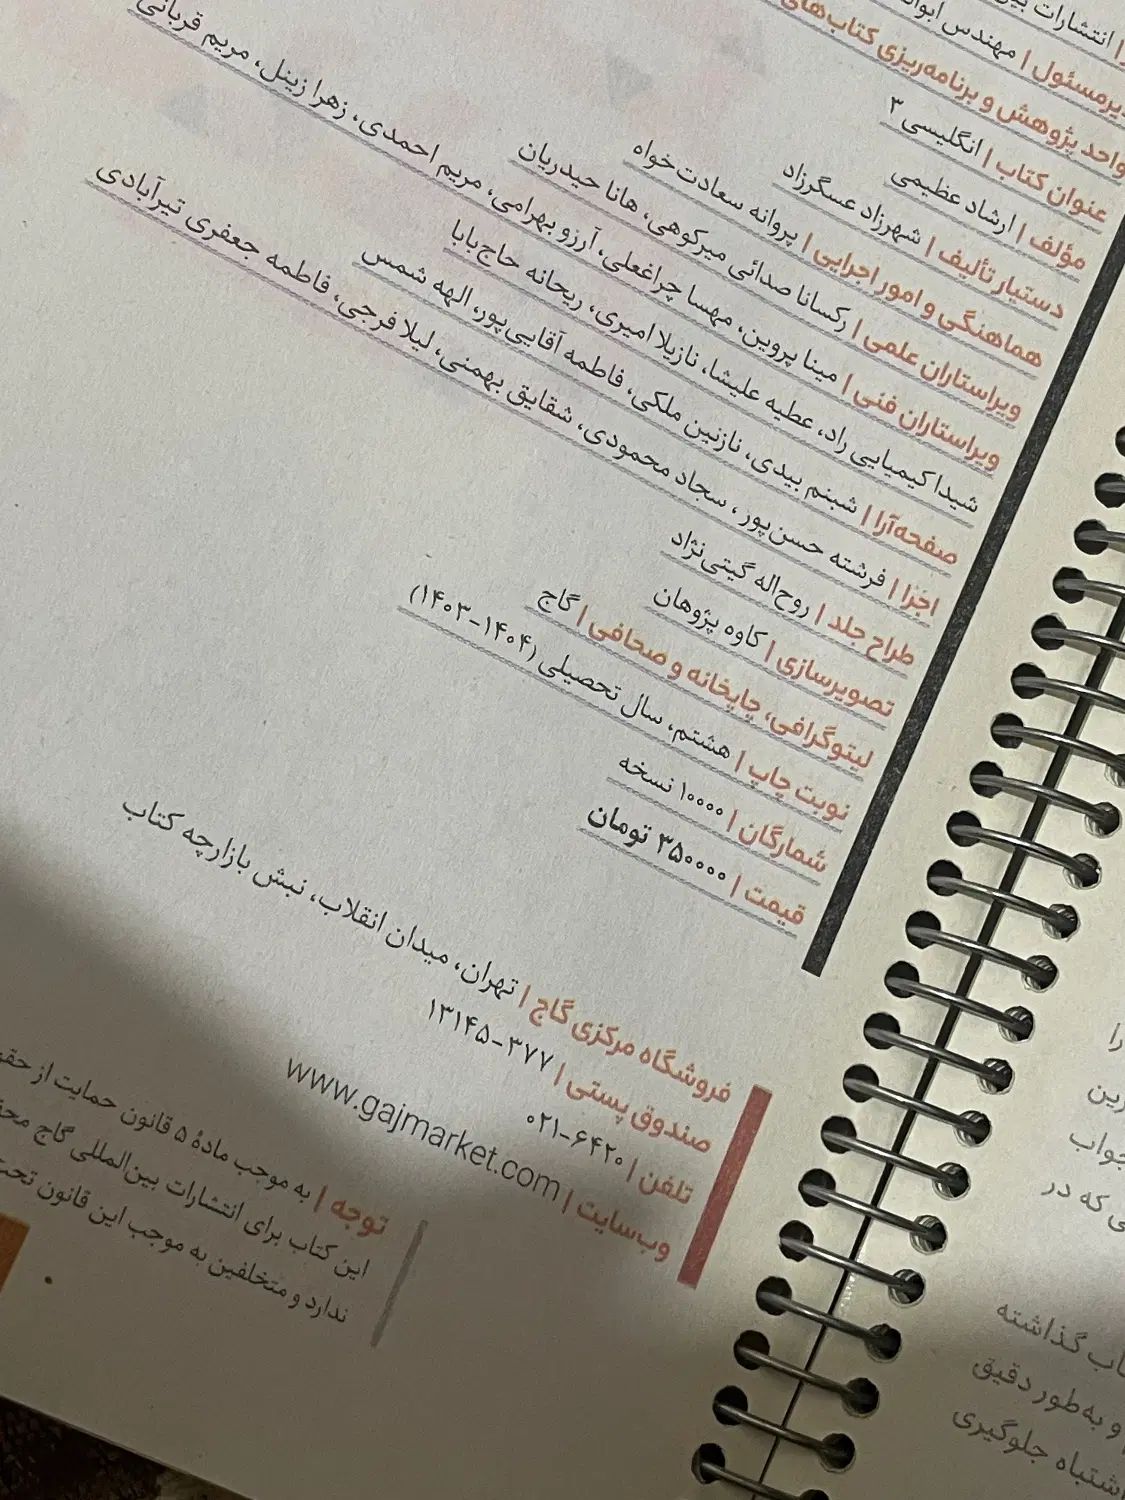 انتشارات
مدیرمسئول | مهندس
واحد پژوهش و برنامه‌ریزی کتاب‌های
عنوان کتاب | انگلیسی ۳
مؤلف | ارشاد عظیمی
دستیار تألیف | شهرزاد عسگرزاد
هماهنگی و امور اجرایی | پروانه سعادت‌خواه
ویراستاران علمی | رکسانا صدائی میرکوهی، هانا حیدریان
ویراستاران فنی | مینا پروین، مهسا چراغعلی، آرزو بهرامی، مریم احمدی، زهرا زینل، مریم قربانی
شیدا کیمیایی راد، عطیه علیشا، نازیلا امیری، ریحانه حاج‌بابا
صفحه‌آرا | شبنم بیدی، نازنین ملکی، فاطمه آقایی‌پور، الهه شمس
اجرا | فرشته حسن‌پور، سجاد محمودی، شقایق بهمنی، لیلا فرجی، فاطمه جعفری تیرآبادی
طراح جلد | روح‌اله گیتی‌نژاد
تصویرسازی | کاوه پژوهان
لیتوگرافی، چاپخانه و صحافی | گاج
نوبت چاپ | هشتم، سال تحصیلی (۱۴۰۴-۱۴۰۳)
شمارگان | ۱۰۰۰۰ نسخه
قیمت | ۳۵۰۰۰۰ تومان
فروشگاه مرکزی گاج | تهران، میدان انقلاب، نبش بازارچه کتاب
صندوق پستی | ۳۷۷-۱۳۱۴۵
تلفن | ۰۲۱-۶۴۲۰
وب‌سایت | www.gajmarket.com
توجه | به موجب مادهٔ ۵ قانون حمایت از
این کتاب برای انتشارات بین‌المللی گاج
ندارد و متخلفین به موجب این قانون
را
جواب
که در
گذاشته
و به‌طور دقیق
اشتباه جلوگیری